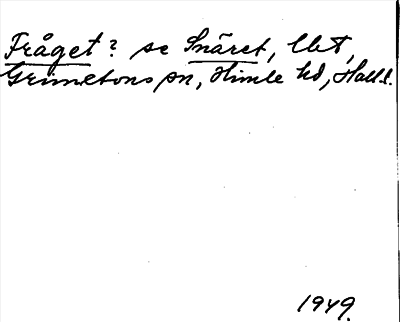 Fråget? se Snäret, lbt,
Grimetons sn, Himle hd, Hall.l.
1949.